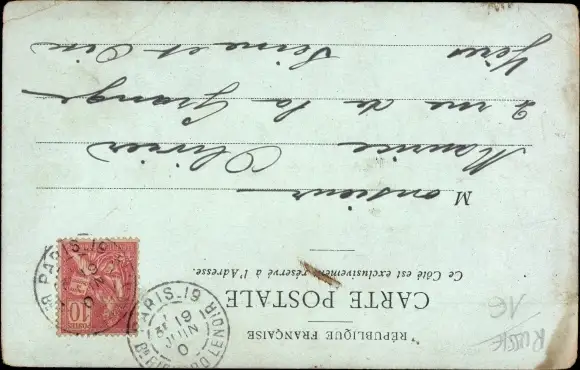 RÉPUBLIQUE FRANÇAISE
CARTE POSTALE
Ce Côté est exclusivement réservé à l'Adresse.
Monsieur
Maurice Olivier
2 rue de la Grange
Yères Seine et Oise
PARIS_19
19
JUIN
0
Bd RICHARD LENOIR
PARIS_19
19
10
RUSSIE